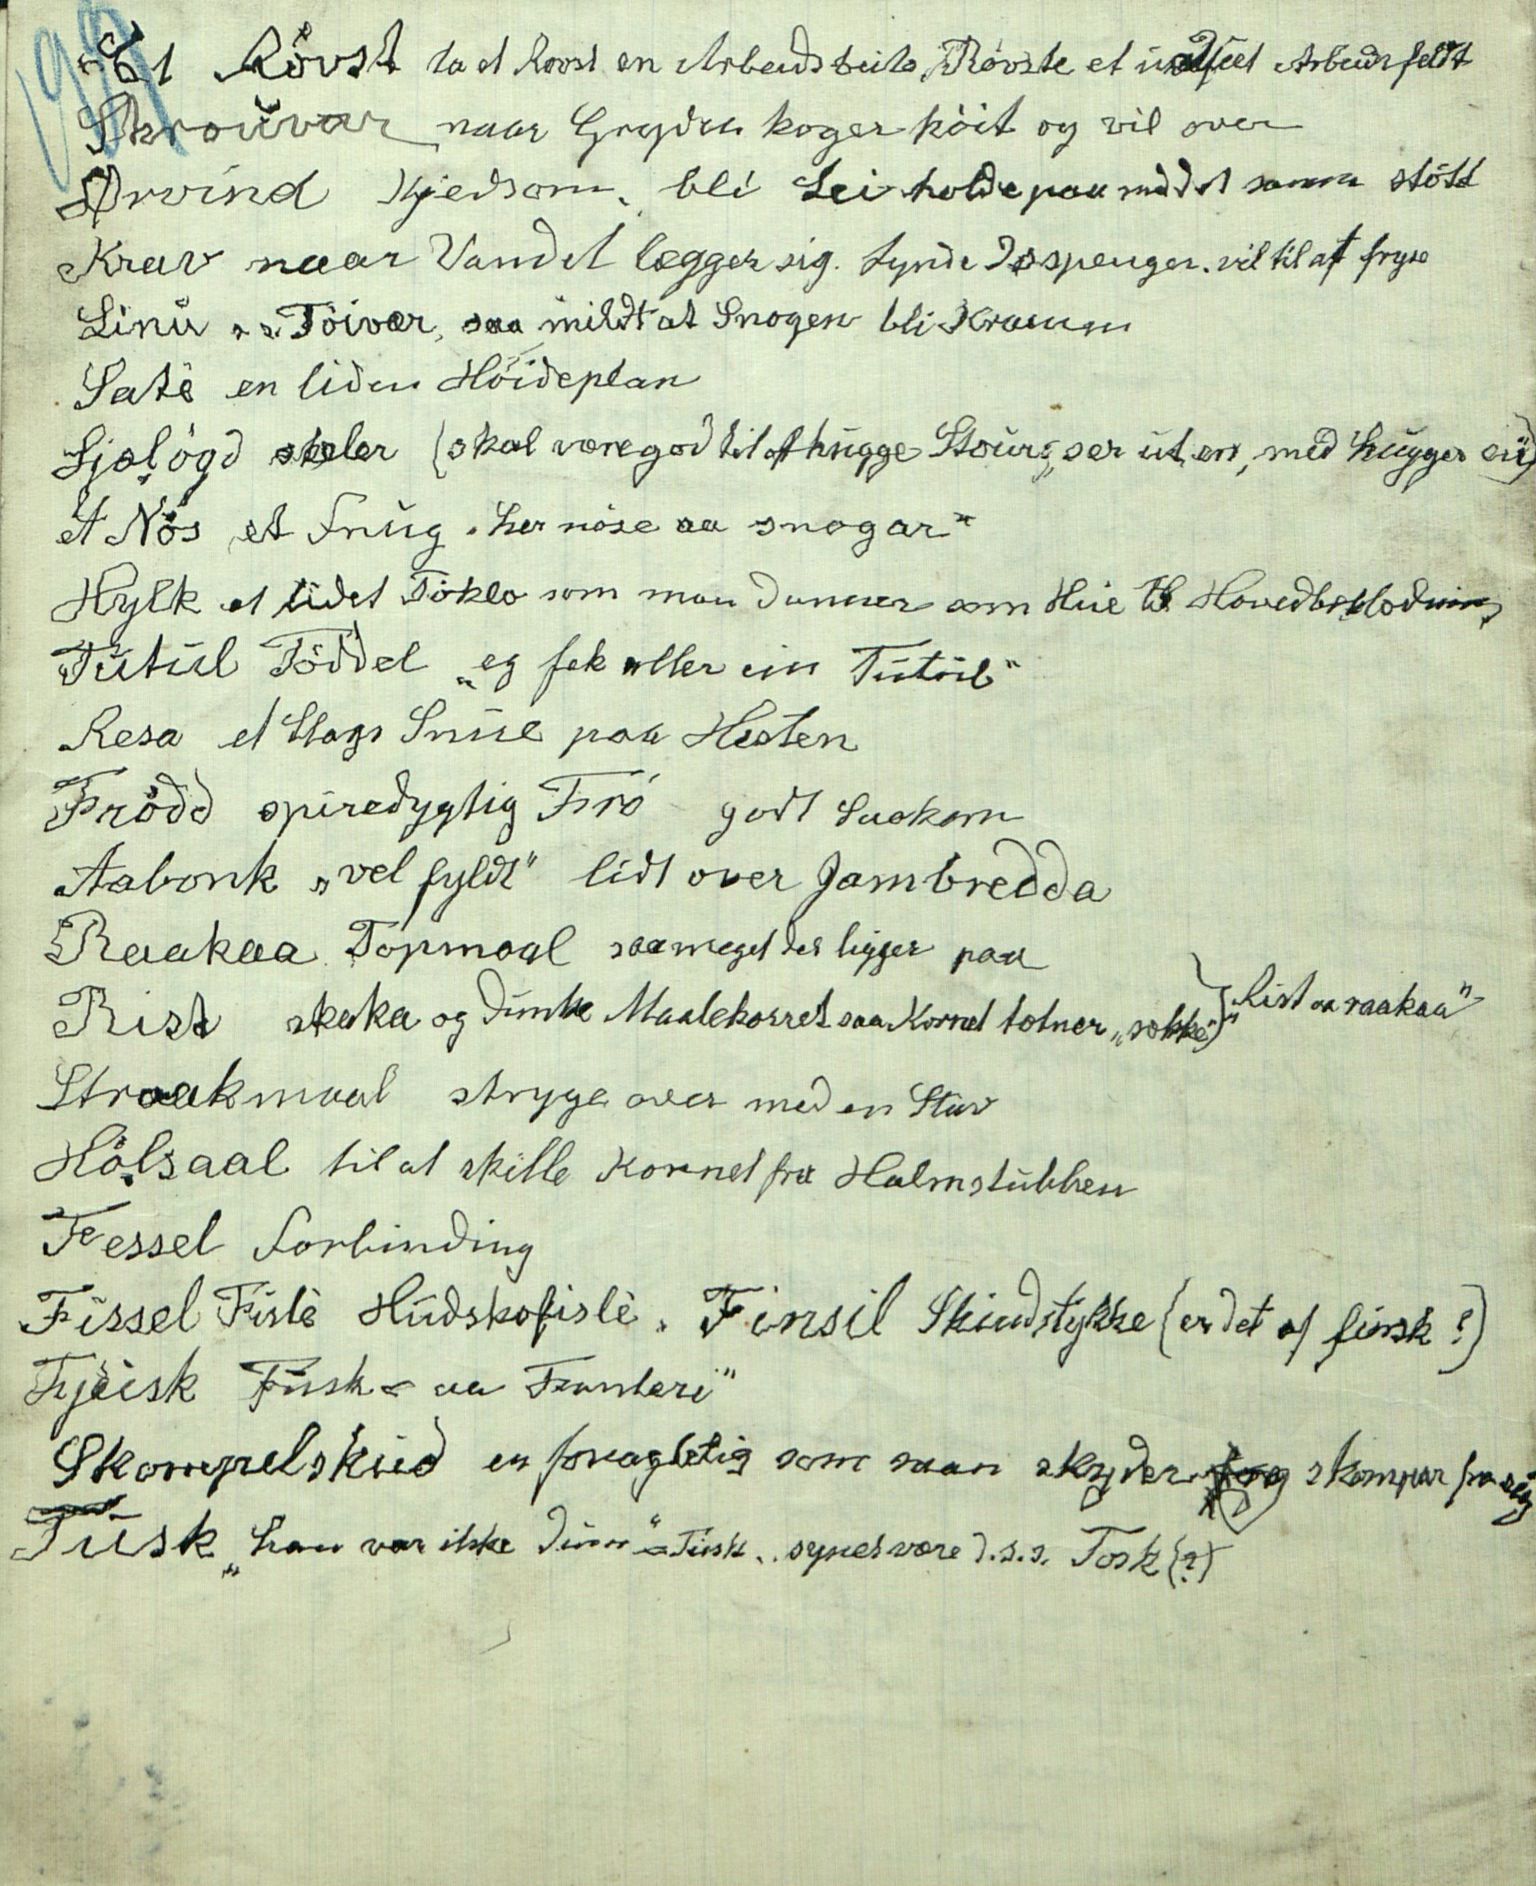 Et Rövst ta et Rovst en Arbeidsteite, Rövste et Arbeidsfeldt
Skrouvar naar Gryden koger höit og vil over
Ørvind Kjedsom, bli Lei holde paa med det samme stött
Krav naar Vandet lægger sig. tynde Isspenger. vil til at fryse
Linü Töivær, saa mildt at Snogen bli Kraum
Satè en liden Höideplan
Sjælögd skeler (skal være god til at hügge Stour; „ser üt en, med hügger ein)
et Nös et Snüg. her nöse aa snogar"
Hylk et lidet Tökle som man danner som Hüe til Hovedbeklædning
Tütül Töddel „eg fek aller ein Tütül"
Resa et Slags Snüe paa Hesten
Frödd spiredygtig Frö godt Saakorn
Aabonk „vel fyldt" lidt over Jambredda
Raakaa Topmaal saa meget der ligger paa
Rist skaka og dünke Maalekorret saa Kornet totner „sokke") „Rist aa raakaa"
Straakmaal stryge over med en Stav
Hölsaal til at skille Kornet fra Halmstübben
Fessel Forbinding
Fissel Fislè Hüdskofislè. Finsil Skindstykke (er det af finsk?)
Fjëisk Füsk aa Fanteri"
Skompelsküd en foragtelig som man skyder og skompar fra sig
Tüsk „han var ikke düm" Tüsk.. synes være d.s.s. Tosk (?)